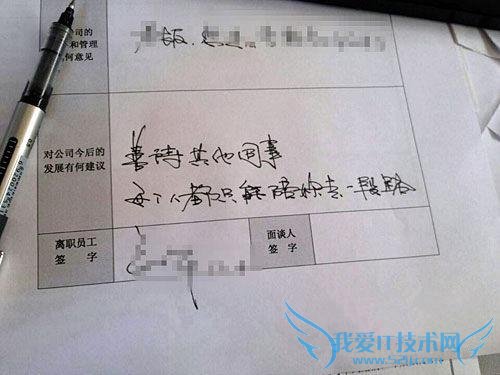 公司的
和管理
何意见
对公司今后的
发展有何建议
善待其他同事
每个人都只能陪你走一段路
离职员工
签 字
面谈人
签 字
我爱IT技术网
www.52ij.com